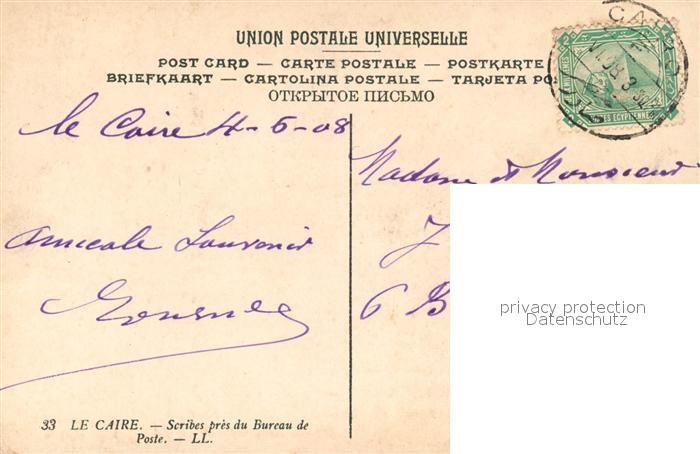 UNION POSTALE UNIVERSELLE
POST CARD — CARTE POSTALE — POSTKARTE
BRIEFKAART — CARTOLINA POSTALE — TARJETA PO
ОТКРЫТОЕ ПИСЬМО
CAIRO
ES EGYPTIENNE
le Caire 4-6-08
Madame et Monsieur
J
6 B
Amicale Souvenir
privacy protection
Datenschutz
33 LE CAIRE. — Scribes près du Bureau de
Poste. — LL.